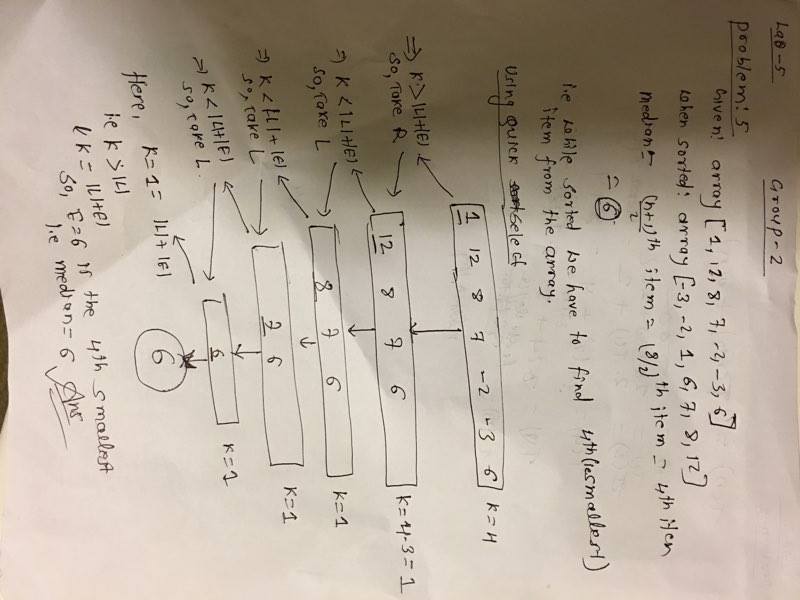 Lab-5
Group-2
Problem: 5
Given: array [1, 12, 8, 7, -2, -3, 6]
When sorted: array [-3, -2, 1, 6, 7, 8, 12]
median = (n+1)/2 th item = (8/2)th item = 4th item
= 6
i.e while sorted we have to find 4th (i.e smallest)
item from the array.
Using Quick Select
1 12 8 7 -2 -3 6 K=4
⇒ K > |L|+|E|
So, Take R
12 8 7 6 K=4-3=1
⇒ K < |L|+|E|
So, Take L
8 7 6 K=1
⇒ K < |L|+|E|
So, Take L
7 6 K=1
⇒ K < |L|+|E|
So, Take L.
6 K=1
6
Here, K=1= |L|+|E|
i.e K > |L|
& K = |L|+|E|
So, E=6 is the 4th smallest
i.e median= 6 Ans